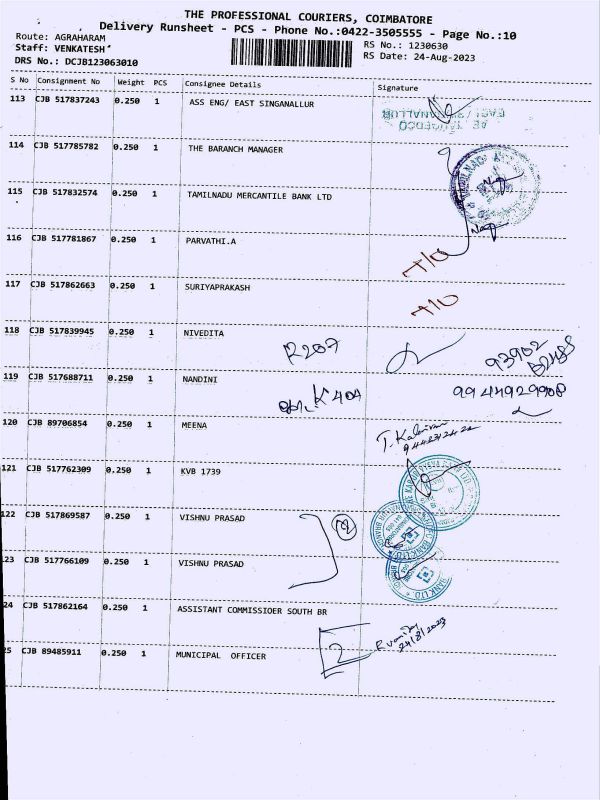 THE PROFESSIONAL COURIERS, COIMBATORE
Delivery Runsheet - PCS - Phone No.:0422-3505555 - Page No.:10
Route: AGRAHARAM
Staff: VENKATESH
DRS No.: DCJB123063010
RS No.: 1230630
RS Date: 24-Aug-2023
S No Consignment No Weight PCS Consignee Details Signature
113 CJB 517837243 0.250 1 ASS ENG/ EAST SINGANALLUR
114 CJB 517785782 0.250 1 THE BARANCH MANAGER
115 CJB 517832574 0.250 1 TAMILNADU MERCANTILE BANK LTD
116 CJB 517781867 0.250 1 PARVATHI.A
117 CJB 517862663 0.250 1 SURIYAPRAKASH
118 CJB 517839945 0.250 1 NIVEDITA R207
119 CJB 517688711 0.250 1 NANDINI K404 9944929908
120 CJB 89706854 0.250 1 MEENA
121 CJB 517762309 0.250 1 KVB 1739
122 CJB 517869587 0.250 1 VISHNU PRASAD
23 CJB 517766109 0.250 1 VISHNU PRASAD
24 CJB 517862164 0.250 1 ASSISTANT COMMISSIOER SOUTH BR
25 CJB 89485911 0.250 1 MUNICIPAL OFFICER 2 24/8/2023